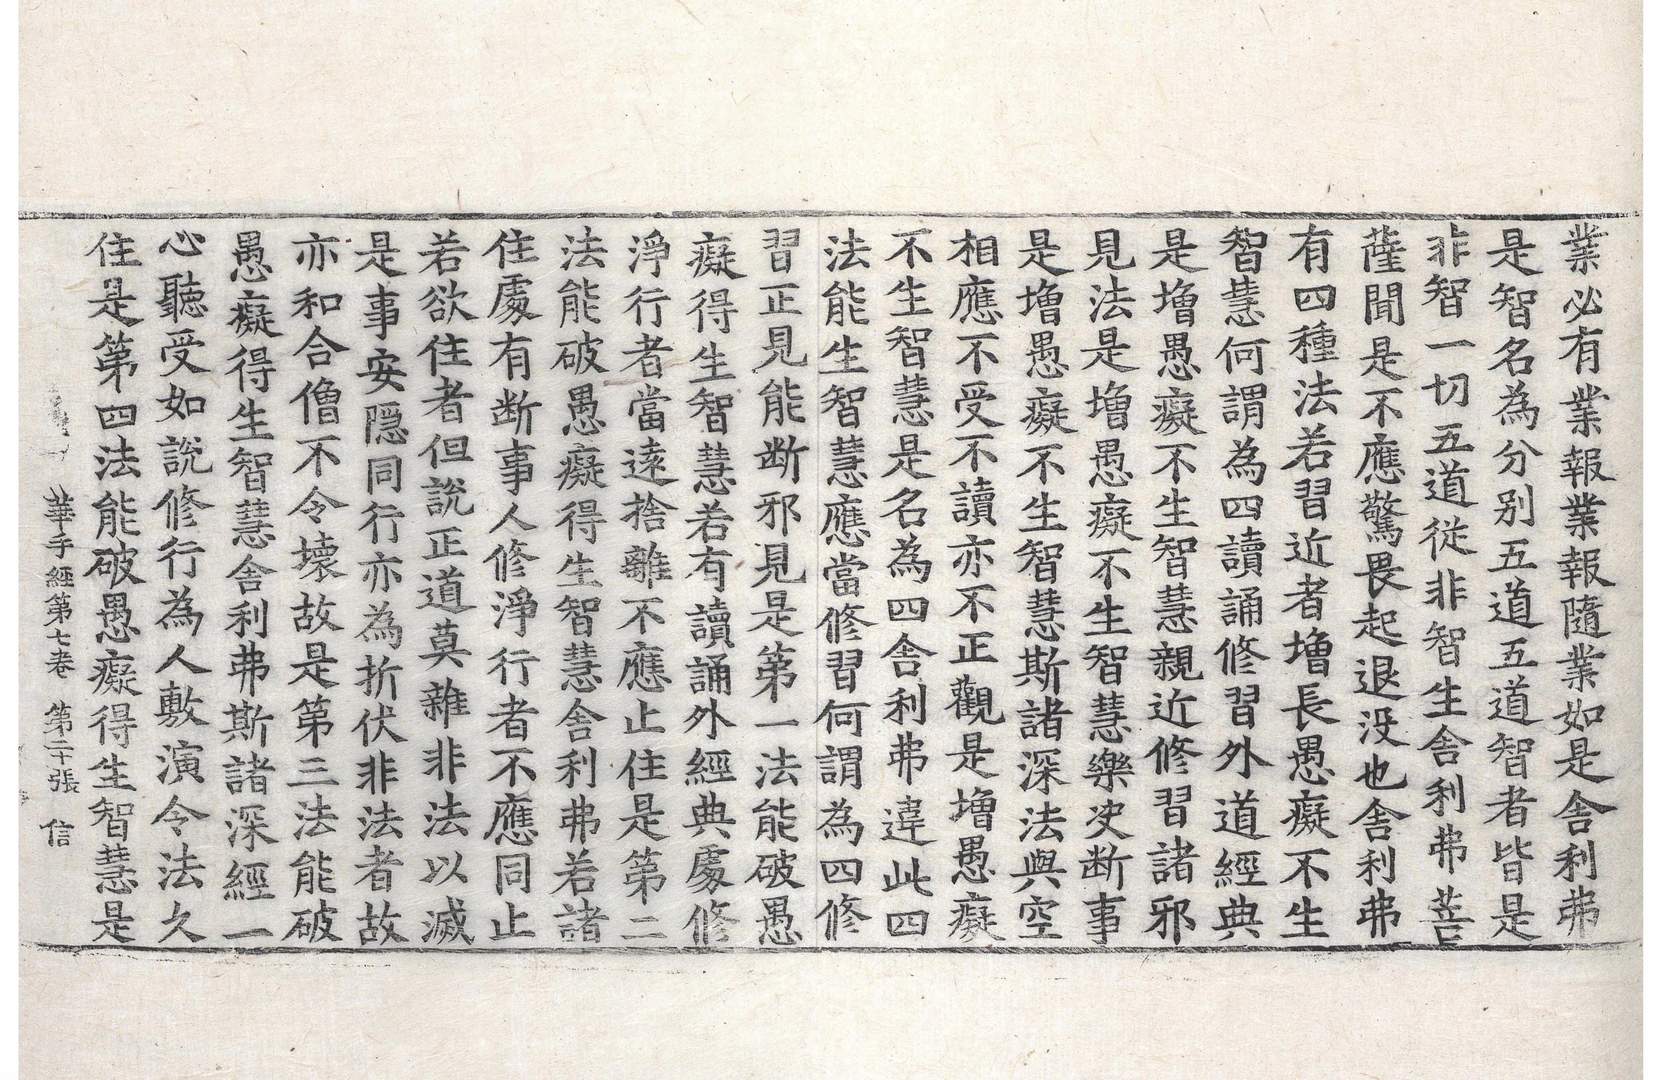 業必有業報業報隨業如是舍利弗
是智名為分別五道五道智者皆是
非智一切五道從非智生舍利弗菩
薩聞是不應驚畏起退没也舍利弗
有四種法若習近者増長愚癡不生
智慧何謂為四讀誦修習外道經典
是増愚癡不生智慧親近修習諸邪
見法是増愚癡不生智慧樂决断事
是増愚癡不生智慧斯諸深法與空
相應不受不讀亦不正觀是増愚癡
不生智慧是名為四舍利弗違此四
法能生智慧應當修習何謂為四修
習正見能断邪見是第一法能破愚
癡得生智慧若有讀誦外經典處修
淨行者當遠捨離不應止住是第二
法能破愚癡得生智慧舍利弗若諸
住處有断事人修淨行者不應同止
若欲住者但說正道莫雜非法以滅
是事安隱同行亦為折伏非法者故
亦和合僧不令壞故是第三法能破
愚癡得生智慧舍利弗斯諸深經一
心聽受如說修行為人敷演令法久
住是第四法能破愚癡得生智慧是
華手經第七卷 第二十張 信